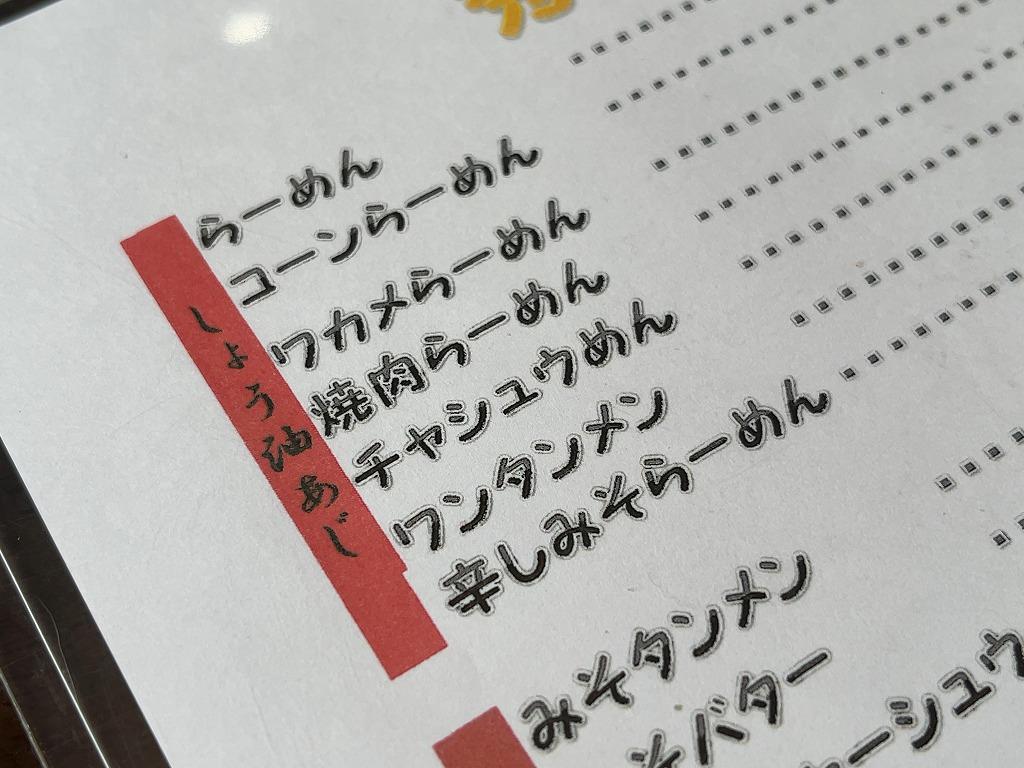 しょう油あじ
らーめん
コーンらーめん
ワカメらーめん
焼肉らーめん
チャシュウめん
ワンタンメン
辛しみそらーめん
みそタンメン
そバター
ーシュウ